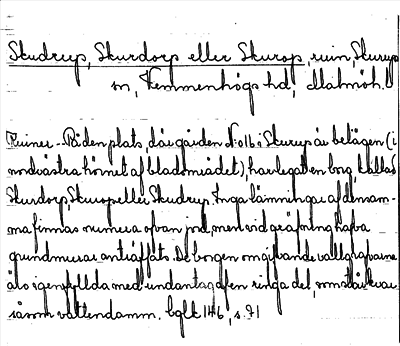 Skudrup, Skurdorp eller Skurop, ruin, Skurup
sn, Vemmenhögs hd, Malmöh.
Ruiner. - På den plats, där gården N:o 16 i Skurup är belägen (i
nordvästra hörnet af bladområdet), har legat en borg, kallad
Skurdorp, Skurop eller Skudrup. Inga lämningar af densam-
ma finnas numera ofvan jord, men vid gräfning hafva
grundmurar anträffats. De borgen omgifvande vallgrafvarne
äro igenfyllda med undantag af en ringa del, som står kvar
såsom vattendamm. bglk 146, s. 71